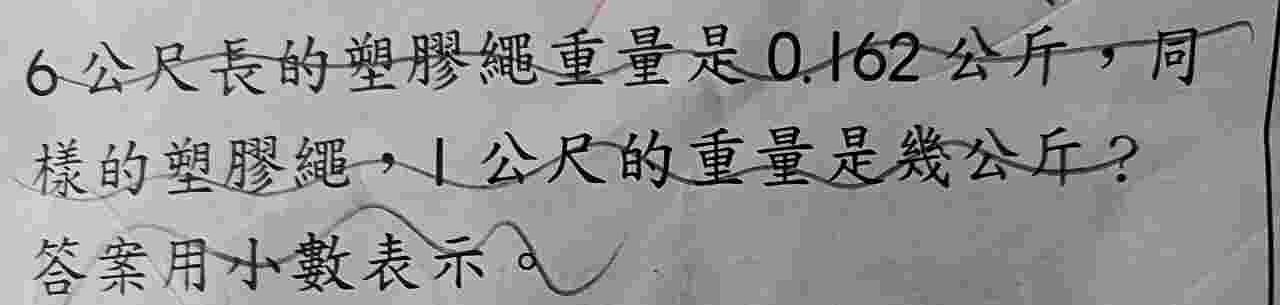 6公尺長的塑膠繩重量是0.162公斤，同
樣的塑膠繩，1公尺的重量是幾公斤？
答案用小數表示。